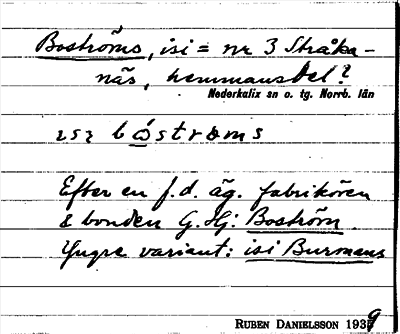 Boströms, isi = nr 3 Stråka-
näs, hemmansdel?
Nederkalix sn o. tg. Norrb. län
ɩsɩ bóstroms
Efter en f.d. äg. fabrikören
& bonden G. Hj. Boström.
Yngre variant: isi Burmans
RUBEN DANIELSSON 1939